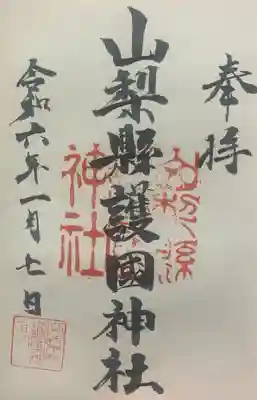 奉拝
山梨縣護國神社
令和六年一月七日